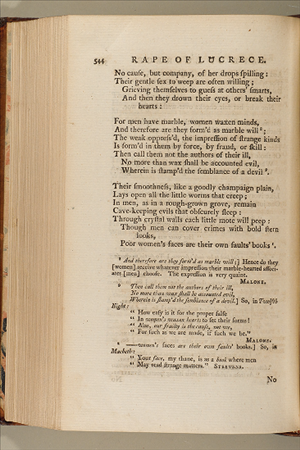 544 RAPE OF LUCRECE.
No cause, but company, of her drops spilling:
Their gentle sex to weep are often willing;
Grieving themselves to guess at others' smarts,
And then they drown their eyes, or break their
hearts:
For men have marble, women waxen minds,
And therefore are they form'd as marble will⁸;
The weak oppress'd, the impression of strange kinds
Is form'd in them by force, by fraud, or skill:
Then call them not the authors of their ill,
No more than wax shall be accounted evil,
Wherein is stamp'd the semblance of a devil⁹.
Their smoothness, like a goodly champaign plain,
Lays open all the little worms that creep;
In men, as in a rough-grown grove, remain
Cave-keeping evils that obscurely sleep:
Through crystal walls each little mote will peep:
Though men can cover crimes with bold stern
looks,
Poor women's faces are their own faults' books¹.
⁸ And therefore are they form'd as marble will;] Hence do they
[women] receive whatever impression their marble-hearted associ-
ates [men] choose. The expression is very quaint.
MALONE.
⁹ Then call them not the authors of their ill,
No more than wax shall be accounted evil,
Wherein is stamp'd the semblance of a devil.] So, in Twelfth
Night:
" How easy is it for the proper false
" In women's waxen hearts to set their forms!
" Alas, our frailty is the cause, not we,
" For such as we are made, if such we be."
MALONE.
¹ —women's faces are their own faults' books.] So, in
Macbeth:
" Your face, my thane, is as a book where men
" May read strange matters." STEEVENS.
No